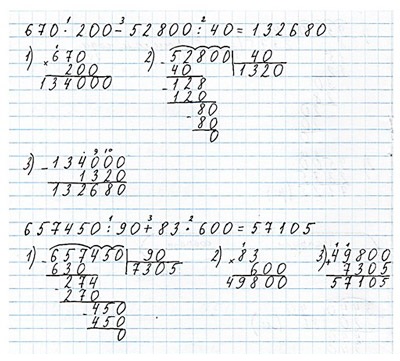 670 · 200 - 52800 : 40 = 132680
1) × 670
200
134000
2) - 52800 | 40
40 | 1320
- 128
120
- 80
80
0
3) - 134000
1320
132680
657450 : 90 + 83 · 600 = 57105
1) - 657450 | 90
630 | 7305
- 274
270
- 450
450
0
2) × 83
600
49800
3) + 49800
7305
57105